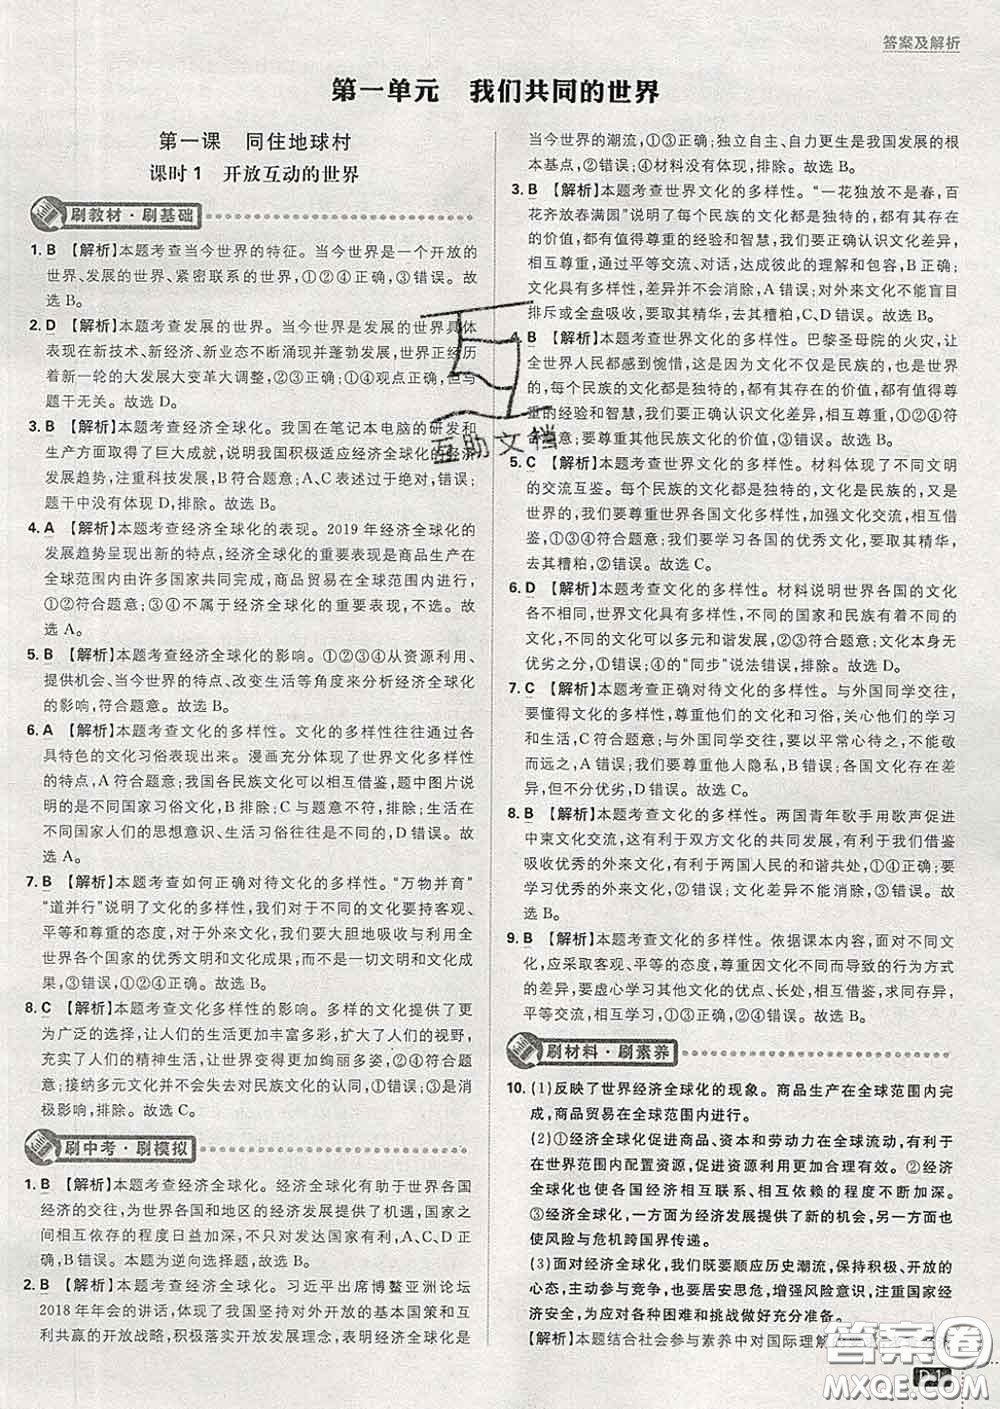 答案及解析
第一单元　我们共同的世界
第一课　同住地球村
课时1　开放互动的世界
刷教材·刷基础
1. B 【解析】本题考查当今世界的特征。当今世界是一个开放的
世界、发展的世界、紧密联系的世界,①②④正确,③错误。故
选 B。
2. D 【解析】本题考查发展的世界。当今世界是发展的世界具体
表现在新技术、新经济、新业态不断涌现并蓬勃发展,世界正经历
着新一轮的大发展大变革大调整,②③正确;①④观点正确,但与
题干无关。故选 D。
3. B 【解析】本题考查经济全球化。我国在笔记本电脑的研发和
生产方面取得了巨大成就,说明我国积极适应经济全球化的经济
发展趋势,注重科技发展,B 符合题意;A、C 表述过于绝对,错误;
题干中没有体现 D,排除。故选 B。
4. A 【解析】本题考查经济全球化的表现。2019 年经济全球化的
发展趋势呈现出新的特点,经济全球化的重要表现是商品生产在
全球范围内由许多国家共同完成,商品贸易在全球范围内进行,
①②符合题意;③④不属于经济全球化的重要表现,不选。故
选 A。
5. B 【解析】本题考查经济全球化的影响。①②③④从资源利用、
提供机会、当今世界的特点、改变生活等角度来分析经济全球化
的影响,符合题意。故选 B。
6. A 【解析】本题考查文化的多样性。文化的多样性往往通过各
具特色的文化习俗表现出来。漫画充分体现了世界文化多样性
的特点,A 符合题意;我国各民族文化可以相互借鉴,题中图片说
明的是不同国家习俗文化,B 排除;C 与题意不符,排除;生活在
不同国家人们的思想意识、生活往往是不同的,D 错误。故
选 A。
7. B 【解析】本题考查如何正确对待文化的多样性。“万物并育”
“道并行”说明了文化的多样性,我们对于不同的文化要持客观、
平等和尊重的态度,对于外来文化,我们要大胆地吸收与利用全
世界各个国家的优秀文明和文化成果,而不是一切文明和文化成
果。③错误,①②④正确。故选 B。
8. C 【解析】本题考查文化多样性的影响。多样的文化提供了更
为广泛的选择,让人们的生活更加丰富多彩,扩大了人们的视野,
充实了人们的精神生活,让世界变得更加绚丽多姿,①②④正确;
接纳多元文化并不会失去对民族文化的认同,③错误;④是消
极影响,排除。故选 C。
刷中考·刷模拟
1. B 【解析】本题考查经济全球化。经济全球化有助于世界各国
经济的交往,为世界各国和地区的经济发展提供了机遇,国家之
间相互依存的程度日益加深。发达国家有机遇,也有挑战,A、C、
D 正确,B 错误。本题为逆向选择题,故选 B。
2. B 【解析】本题考查经济全球化。习近平出席博鳌亚洲论坛
2018 年年会的讲话,体现了我国坚持对外开放的基本国策和互
利共赢的开放战略,积极落实开放发展理念,表明经济全球化是
当今世界的潮流,①③正确;独立自主、自力更生是我国发展的根
本基点,②错误;④材料没有体现,排除。故选 B。
3. B 【解析】本题考查世界文化的多样性。“一花独放不是春,百
花齐放春满园”说明了每个民族的文化都是独特的,都有其存在
的价值,都有值得尊重的经验和智慧,我们要正确认识文化差异,
相互尊重,通过平等交流、对话,达成彼此的理解和包容,B 正确;
文化具有多样性,并存在差异性,A 错误;对外来文化不能盲目
排斥或全盘吸收,要取其精华,去其糟粕,C、D 错误。故选 B。
4. B 【解析】本题考查文化的多样性。巴黎圣母院的火灾,让
全世界人民都感到惋惜,这是因为文化不仅是民族的,也是世界
的,每个民族的文化都是独特的,都有其存在的价值,都有值得尊
重的经验和智慧,我们要正确认识文化差异,相互尊重,①②④符
合题意;要尊重其他民族文化的价值,③错误。故选 B。
5. C 【解析】本题考查世界文化的多样性。材料体现了不同文明
的交流互鉴。每个民族的文化都是独特的,文化是民族的,又是
世界的,我们要尊重世界各民族文化,加强文化交流,相互学习借
鉴,①③④符合题意;我们要学习各国的优秀文化,要取其精华,
去其糟粕,②错误。故选 C。
6. D 【解析】本题考查文化的多样性。材料说明世界各国的文化
各不相同,世界文化具有多样性,不同的国家和民族有着不同的
文化,不同的文化可以多元和谐发展,②③符合题意;文化本身无
优劣之分,①错误;④的“同步”说法错误,排除。故选 D。
7. C 【解析】本题考查正确对待文化的多样性。与外国同学交往,
要懂得文化的多样性,尊重他们的文化和习俗,关心他们的学习
和生活,C 正确;与外国同学交往,要以平常心待之,不能敬
而远之,A 错误;要尊重他人隐私,B 错误;各国文化存在差
异,但不分优劣,D 错误。故选 C。
8. B 【解析】本题考查文化的多样性。两国青年歌手用歌声促进
中柬文化交流,这有利于双方文化的共同发展,有利于我们借鉴
吸收优秀的外来文化,有利于两国人民的和谐共处,①③④正确;要
学习优秀的外来文化,②错误;文化差异不能消除,③错误。
故选 B。
9. B 【解析】本题考查文化的多样性。依据课本内容,面对不同文
化,应采取客观、平等的态度,尊重因文化不同而导致的行为方式
的差异,要虚心学习其他文化的优点、长处,相互借鉴,求同存异,
平等交流,相互合作,①②③④都正确。故选 B。
刷材料·刷素养
10. (1)反映了世界经济全球化的现象。商品生产在全球范围内完
成,商品贸易在全球范围内进行。
(2)①经济全球化促进商品、资本和劳动力在全球流动,有利于
在世界范围内配置资源,促进资源利用更加合理有效。②经济
全球化也使各国经济相互联系、相互依赖的程度不断加深。
③经济全球化,一方面为经济发展提供了新的机会,另一方面也
使风险与危机跨国界传递。
(3)面对经济全球化,我们既要顺应历史潮流,保持积极、开放的
心态,主动参与竞争,也要居安思危,增强风险意识,注重国家
经济安全,为应对各种困难和挑战做好充分准备。
【解析】本题结合社会参与素养中对国际理解
互助文档
答案圈
MXQE.COM
D-1